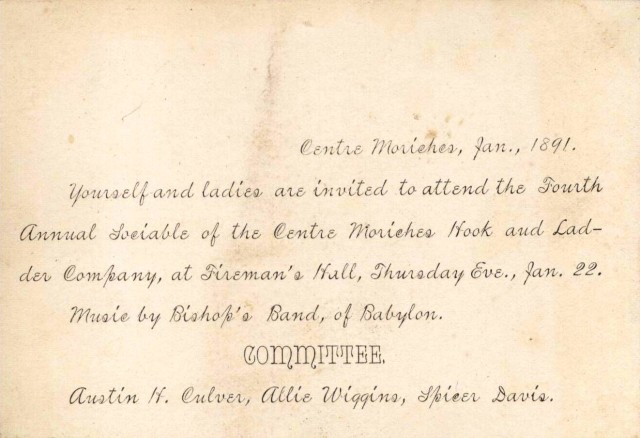 Centre Moriches, Jan., 1891.
Yourself and ladies are invited to attend the Fourth
Annual Sociable of the Centre Moriches Hook and Lad-
der Company, at Fireman's Hall, Thursday Eve., Jan. 22.
Music by Bishop's Band, of Babylon.
COMMITTEE.
Austin H. Culver, Allie Wiggins, Spicer Davis.